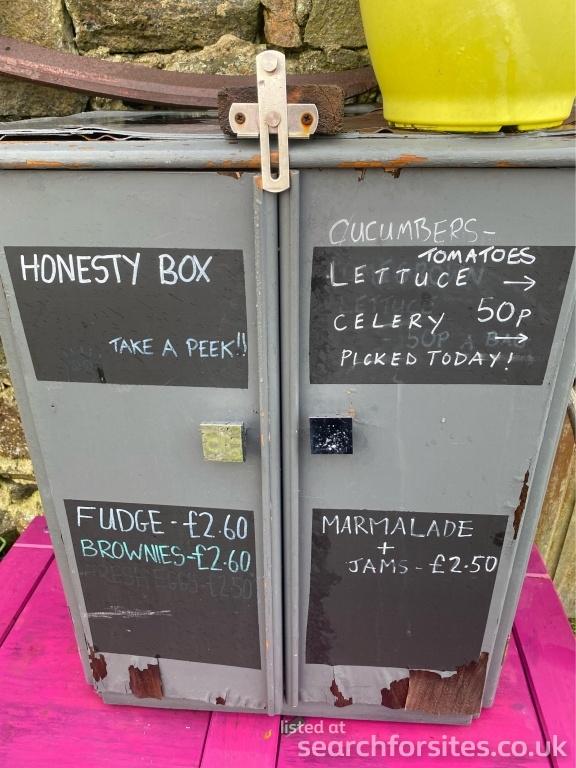 HONESTY BOX
TAKE A PEEK!!
CUCUMBERS-
TOMATOES
LETTUCE →
CELERY 50P
- 50P A BAG
→
PICKED TODAY!
FUDGE - £2.60
BROWNIES - £2.60
FRESH EGGS - £2.50
MARMALADE
+
JAMS - £2.50
listed at
searchforsites.co.uk